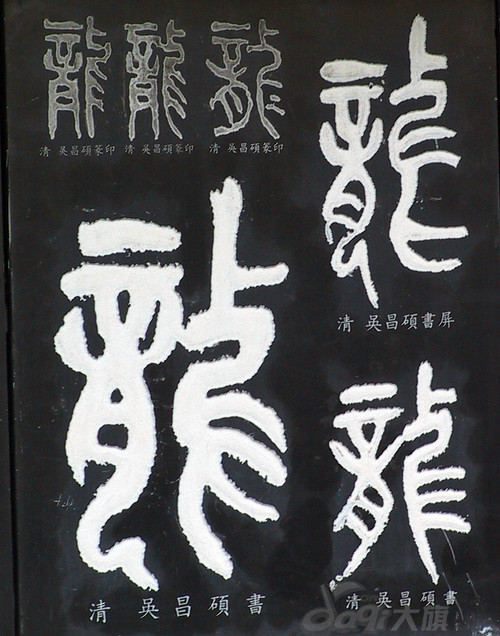 龍 龍 龍
清 吳昌碩篆印 清 吳昌碩篆印 清 吳昌碩篆印
龍
清 吳昌碩書屏
龍
清 吳昌碩書
龍
清 吳昌碩書
da91大旗